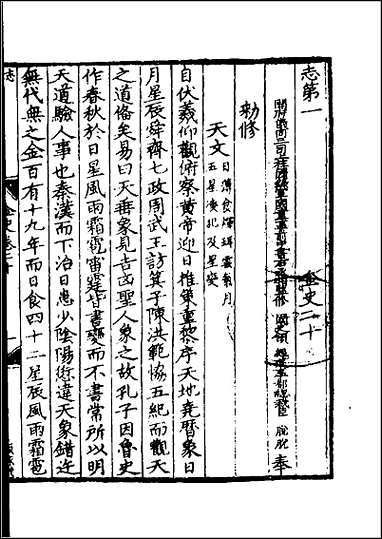 志第一
金史二十
開府儀同三司上柱國錄軍國重事前中書右丞相監修國史領經筵事都總裁臣脫脫奉
勑修
天文 日薄食煇珥雲氣月
五星淩犯及星變
自伏羲仰觀俯察黃帝迎日推策重黎序天地堯曆象日
月星辰舜齊七政周武王訪箕子陳洪範協五紀而觀天
之道備矣易曰天垂象見吉凶聖人象之故孔子因魯史
作春秋於日星風雨霜雹雷霆皆書變而不書常所以明
天道驗人事也秦漢而下治日患少陰陽愆違天象錯迕
無代無之金百有十九年而日食四十二星辰風雨霜雹
志
金史卷二十
一